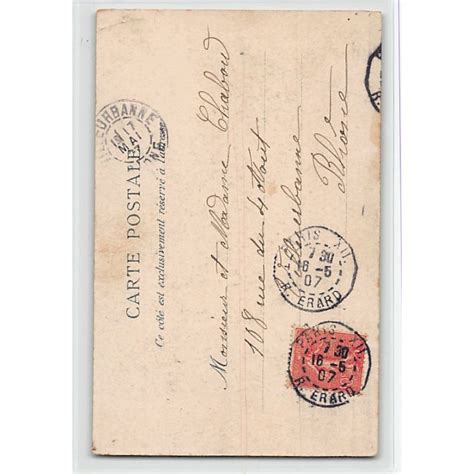 CARTE POSTALE
Ce côté est exclusivement réservé à l'adresse
Monsieur et Madame Chaboud
108 rue du 4 Août
Villeurbanne
Rhône
PARIS XII
7 30
16-5
07
R. ERARD
PARIS XII
7 30
16-5
07
R. ERARD
VILLEURBANNE
17
MAI